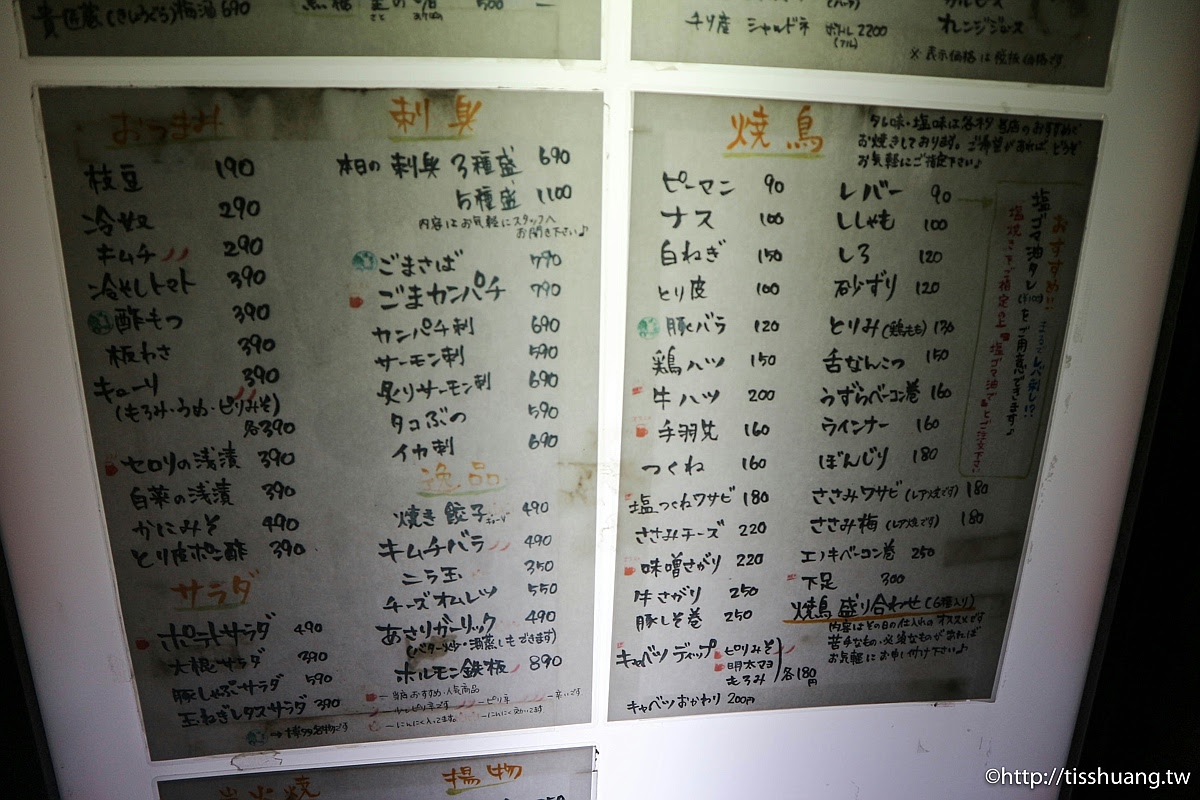 貴匠蔵(きしょうぐら)梅酒 690
500
チリ産 シャルドネ ボトル 2200
(フル)
オレンジジュース
※表示価格は税抜価格です
おつまみ
枝豆 190
冷奴 290
キムチ 290
冷やしトマト 390
酢もつ 390
板わさ 390
キューリ 390
(もろみ・うめ・ピリみそ)
各390
セロリの浅漬 390
白菜の浅漬 390
かにみそ 490
とり皮ポン酢 390
サラダ
ポテトサラダ 490
大根サラダ 390
豚しゃぶサラダ 590
玉ねぎレタスサラダ 390
→博多名物です
刺身
本日の刺身 3種盛 690
5種盛 1100
内容はお気軽にスタッフへ
お聞き下さい♪
ごまさば 790
ごまカンパチ 790
カンパチ刺 690
サーモン刺 590
炙りサーモン刺 690
タコぶつ 590
イカ刺 690
逸品
焼き餃子 490
キムチバラ 490
ニラ玉 350
チーズオムレツ 550
あさりガーリック 490
(バター炒め・酒蒸しもできます)
ホルモン鉄板 890
―当店おすすめ・人気商品
―ピリ辛 ―辛いです
―にんにく入ってます。 ―にんにく効いてます
焼鳥
タレ味・塩味は各ネタ当店のおすすめで
お焼きしております。ご希望があれば どうぞ
お気軽にご指定下さい♪
ピーマン 90
ナス 100
白ねぎ 150
とり皮 100
豚バラ 120
鶏ハツ 150
牛ハツ 200
手羽先 160
つくね 160
塩つくねワサビ 180
ささみチーズ 220
味噌さがり 220
牛さがり 250
豚しそ巻 250
キャベツディップ ピリみそ
明太マヨ
もろみ
各180円
キャベツおかわり 200円
レバー 90
ししゃも 100
しろ 120
砂ずり 120
とりみ(鶏もも) 130
舌なんこつ 150
うずらベーコン巻 160
ウインナー 160
ぼんじり 180
ささみワサビ(レア焼です) 180
ささみ梅(レア焼です) 180
エノキベーコン巻 250
下足 300
焼鳥盛り合わせ(6種入り)
内容はその日の仕入れのオススメです
苦手なもの・必須なものがあれば
お気軽にお申し付け下さい♪
おすすめ!! まるでレバ刺し!?
塩ゴマ油タレ(+100)をご用意できます♪
塩焼きでご指定の上"塩ゴマ油で"とご注文下さい
炭火焼
揚物
©http://tisshuang.tw